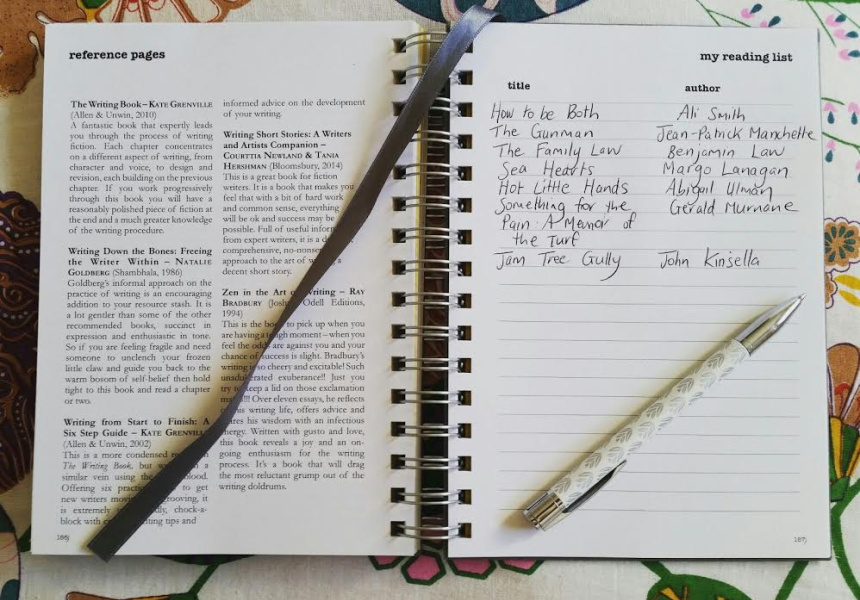 reference pages
The Writing Book – KATE GRENVILLE
(Allen & Unwin, 2010)
A fantastic book that expertly leads
you through the process of writing
fiction. Each chapter concentrates
on a different aspect of writing, from
character and voice, to design and
revision, each building on the previous
chapter. If you work progressively
through this book you will have a
reasonably polished piece of fiction at
the end and a much greater knowledge
of the writing procedure.
Writing Down the Bones: Freeing
the Writer Within – NATALIE
GOLDBERG (Shambhala, 1986)
Goldberg's informal approach on the
practice of writing is an encouraging
addition to your resource stash. It is
a lot gentler than some of the other
recommended books, succinct in
expression and enthusiastic in tone.
So if you are feeling fragile and need
someone to unclench your frozen
little claw and guide you back to the
warm bosom of self-belief then hold
tight to this book and read a chapter
or two.
Writing from Start to Finish: A
Six Step Guide – KATE GRENVILLE
(Allen & Unwin, 2002)
This is a more condensed
The Writing Book, but a
similar vein using the blood.
Offering six to get
new writers grooving, it
is extremely chock-a-
block with writing tips and
informed advice on the development
of your writing.
Writing Short Stories: A Writers
and Artists Companion –
COURTTIA NEWLAND & TANIA
HERSHMAN (Bloomsbury, 2014)
This is a great book for fiction
writers. It is a book that makes you
feel that with a bit of hard work
and common sense, everything
will be ok and success may be
possible. Full of useful
from expert writers, it is a
comprehensive, no-nonsense
approach to the art of a
decent short story.
Zen in the Art of Writing – RAY
BRADBURY (Joshua Odell Editions,
1994)
This is the book to pick up when you
are having a rough moment – when you
feel the odds are against you and your
chance of success is slight. Bradbury's
writing is so cheery and excitable! Such
unadulterated exuberance!! Just you
try to keep a lid on those exclamation
Over eleven essays, he reflects
on his writing life, offers advice and
shares his wisdom with an infectious
energy. Written with gusto and love,
this book reveals a joy and an on-
going enthusiasm for the writing
process. It's a book that will drag
the most reluctant grump out of the
writing doldrums.
my reading list
title author
How to be Both Ali Smith
The Gunman Jean-Patrick Manchette
The Family Law Benjamin Law
Sea Hearts Margo Lanagan
Hot Little Hands Abigail Ulman
Something for the Gerald Murnane
Pain: A Memoir of
the Turf
Jam Tree Gully John Kinsella